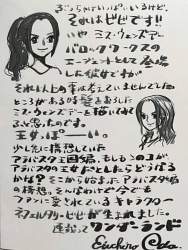 それはビビです!!
いや ミス・ウェンズデー
バロックワークスの
エージェントとして登場
した彼女ですが
それ以上の事は考えていませんでした
ところがある時髪を下ろした
ミス・ウェンズデーを描いてみて
ふと思ったのです。
王女っぽーい。
少し先に構想していた
アラバスタ王国編、もしもこのコが
アラバスタの王女だとしたらどうなる
かな？ そこから始まったアラバスタ編
の構想。そんなわけで今でも
ファンに愛されているキャラクター
ネフェルタリ・ビビが生まれました。
連載って ワンダーランド
Eiichiro Oda